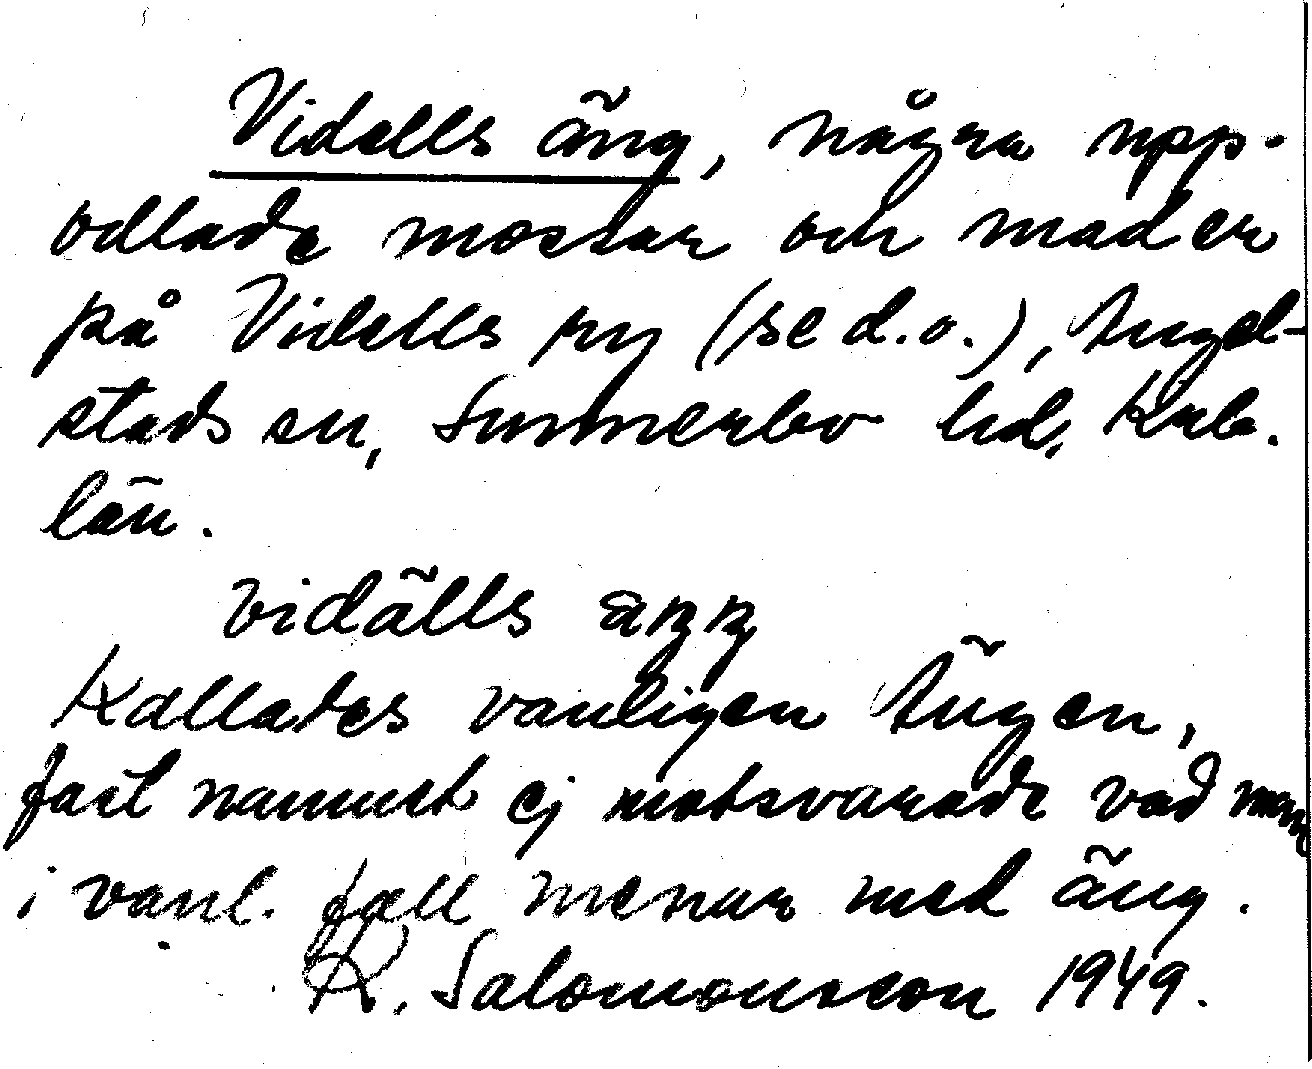 Vidälls äng, några upp-
odlade mossar och mader
på Vidälls ry (se d.o.), Angel-
stads sn, Sunnerbo hd, Krb.
län.
vidälls äŋŋ
Kallades vanligen Ängen,
fast namnet ej motsvarade vad man
i vanl. fall menar med äng.
R. Salomonsson 1949.